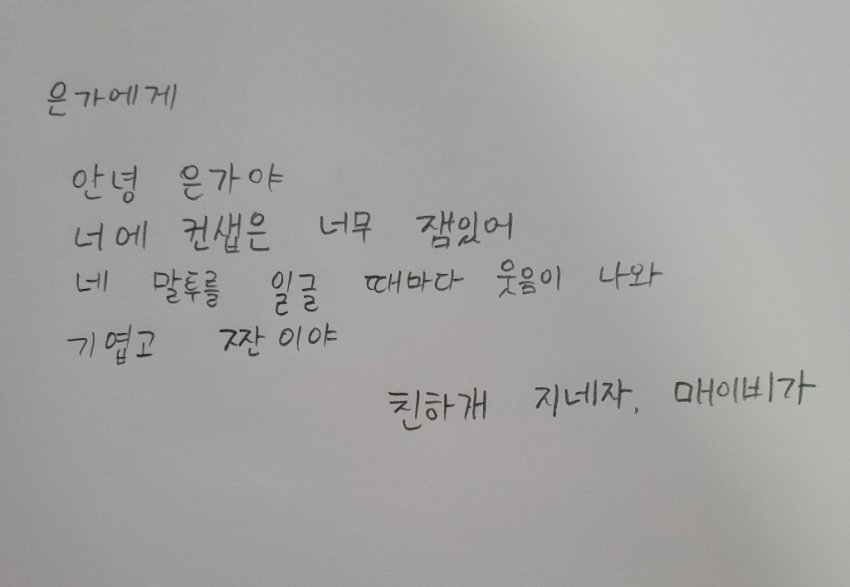 은가에게
안녕 은가야
너에 컨샙은 너무 잼있어
네 말투를 일글 때마다 웃음이 나와
기엽고 짠이야
친하개 지네자. 매이비가